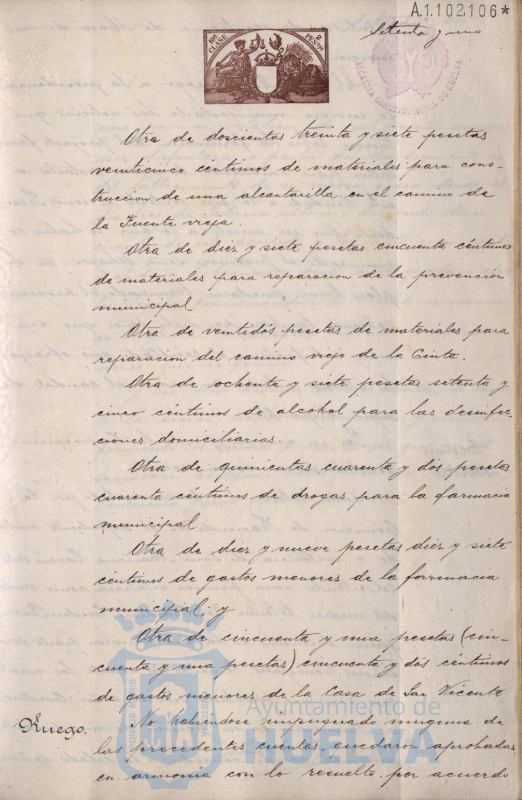 A.1.102.106*
Setenta y uno
10ª CLASE
2 PESTAS
Otra de doscientas treinta y siete pesetas
veinticinco céntimos de materiales para cons-
truccion de una alcantarilla en el camino de
la Fuente vieja.
Otra de diez y siete pesetas cincuenta céntimos
de materiales para reparacion de la prevencion
municipal
Otra de veintidós pesetas de materiales para
reparacion del camino viejo de la Cinta.
Otra de ochenta y siete pesetas setenta y
cinco céntimos de alcohol para las desinfec-
ciones domiciliarias.
Otra de quinientas cuarenta y dós pesetas
cuarenta céntimos de drogas para la farmacia
municipal
Otra de diez y nueve pesetas diez y siete
céntimos de gastos menores de la farmacia
municipal; y
Otra de cincuenta y una pesetas (cin-
cuenta y una pesetas) cincuenta y dós céntimos
de gastos menores de la Casa de San Vicente
Ruego.
No habiendose impugnado ninguna de
las precedentes cuentas, quedaron aprobadas
en armonia con lo resuelto por acuerdo
Ayuntamiento de
HUELVA